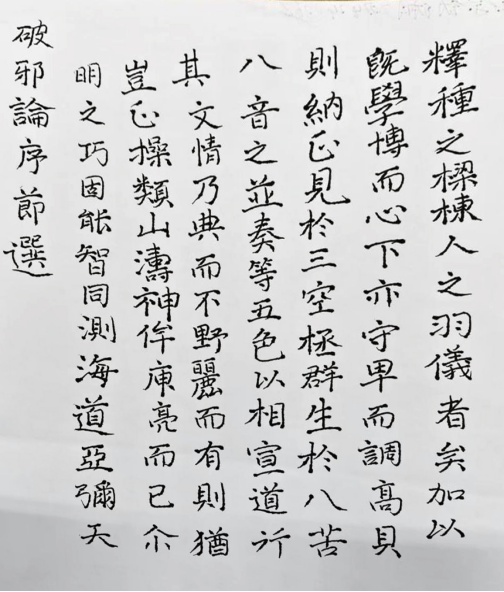 釋種之樑棟人之羽儀者矣加以
旣學博而心下亦守卑而調高貝
則納正見於三空拯群生於八苦
八音之並奏等五色以相宣道行
其文情乃典而不野麗而有則猶
豈止操類山濤神侔庾亮而已尒
明之巧固能智同測海道亞彌天
破邪論序節選